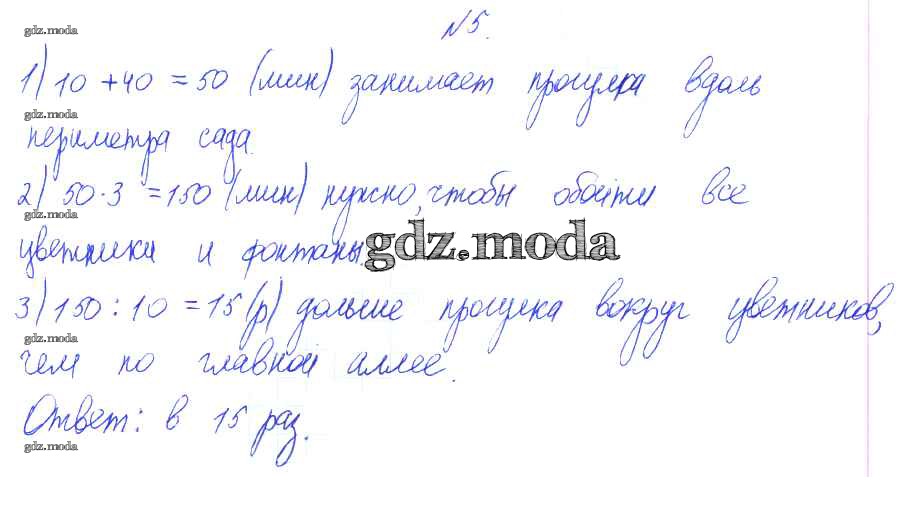 gdz.moda
№5.
1) 10 + 40 = 50 (мин) занимает прогулка вдоль
gdz.moda
периметра сада.
2) 50 · 3 = 150 (мин) нужно, чтобы обойти все
gdz.moda
цветники и фонтаны.
gdz.moda
3) 150 : 10 = 15 (р) дольше прогулка вокруг цветников,
gdz.moda
чем по главной аллее.
Ответ: в 15 раз.
gdz.moda